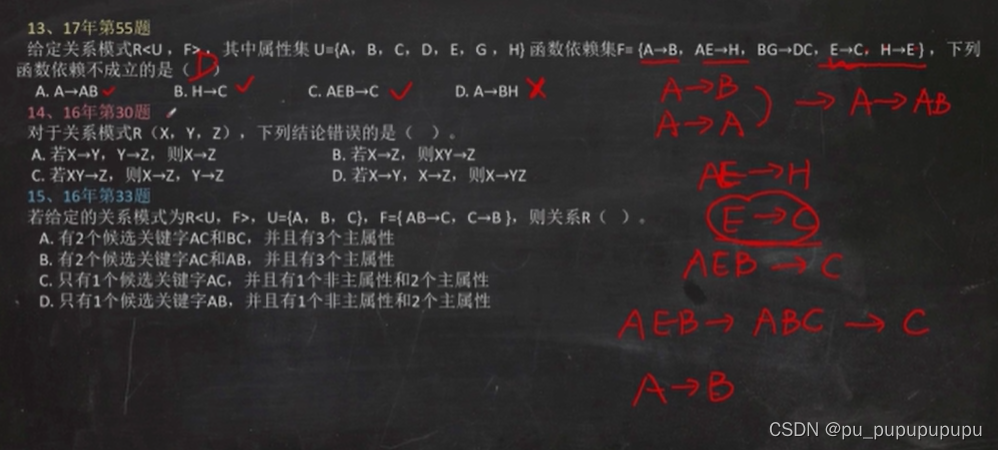 13、17年第55题
给定关系模式R<U，F>，其中属性集 U={A，B，C，D，E，G，H} 函数依赖集F={A→B，AE→H，BG→DC，E→C，H→E}，下列
函数依赖不成立的是（D）
A. A→AB B. H→C C. AEB→C D. A→BH
14、16年第30题
对于关系模式R（X，Y，Z），下列结论错误的是（ ）。
A. 若X→Y，Y→Z，则X→Z B. 若X→Z，则XY→Z
C. 若XY→Z，则X→Z，Y→Z D. 若X→Y，X→Z，则X→YZ
15、16年第33题
若给定的关系模式为R<U，F>，U={A，B，C}，F={ AB→C，C→B }，则关系R（ ）。
A. 有2个候选关键字AC和BC，并且有3个主属性
B. 有2个候选关键字AC和AB，并且有3个主属性
C. 只有1个候选关键字AC，并且有1个非主属性和2个主属性
D. 只有1个候选关键字AB，并且有1个非主属性和2个主属性
A→B
A→A
→ A→AB
AE→H
E→C
AEB→C
AEB→ABC→C
A→B
CSDN @pu_pupupupupu